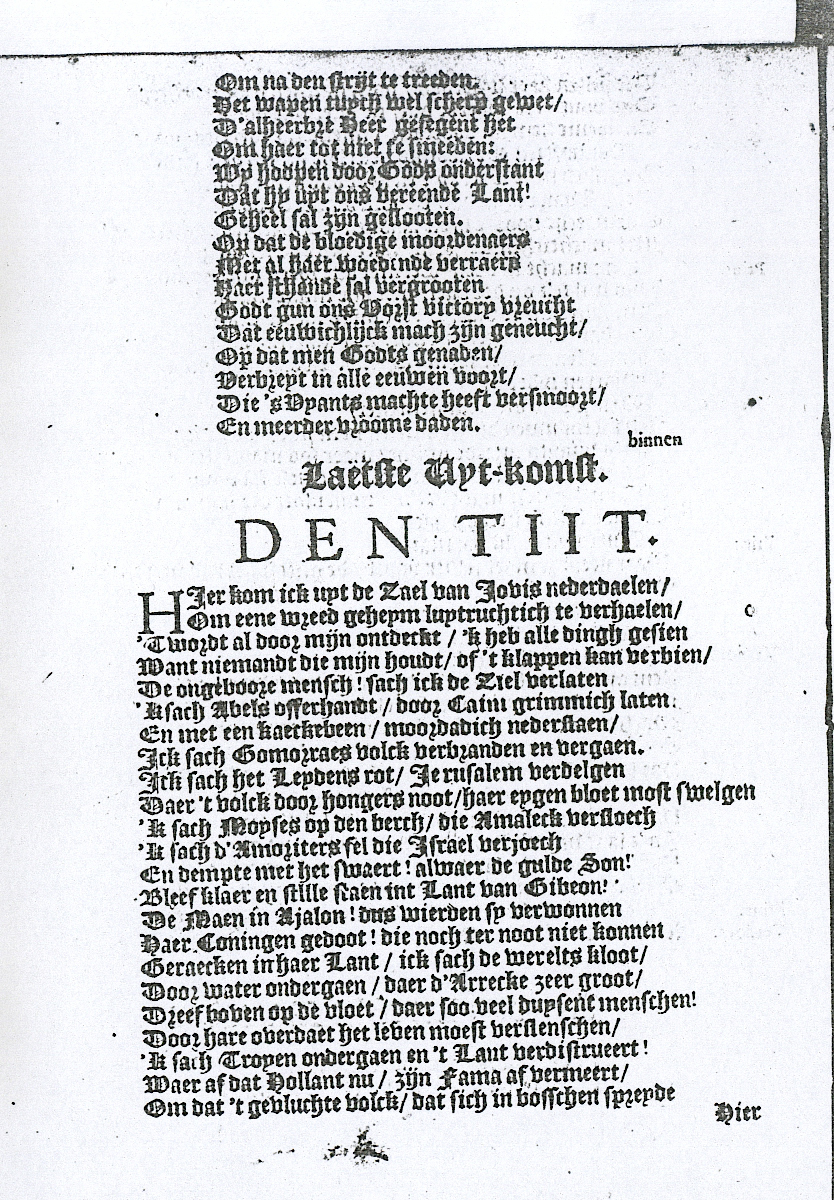 Om na den strijt te treeden.
Het wapen tuych wel scherp gewet/
D'alheerbre Heer gesegent het
Om haer tot niet te smeeden:
Wy hoopen door Gods onderstant
Dat hy uyt ons vereende Lant!
Geheel sal zijn geslooten.
Op dat de bloedige moordenaers
Met al haer woedende verraers
Haer schande sal vergrooten
Godt gun ons Vorst victory vreucht
Dat eeuwichlijck mach zijn geneucht/
Op dat men Godts genaden/
Verbreyt in alle eeuwen voort/
Die 's Vyants machte heeft versmoort/
En meerder vroome daden.
binnen
Laetste Uyt-komst.
DEN TIIT.
HJer kom ick uyt de Zael van Jovis nederdaelen/
Om eene wreed geheym luytruchtich te verhaelen/
'Twordt al door mijn ontdeckt / 'k heb alle dingh gesien
Want niemandt die mijn houdt/ of 't klappen kan verbien/
De ongeboore mensch! sach ick de Ziel verlaten
'K sach Abels offerhandt / door Caim grimmich laten.
En met een kaeckebeen / moordadich nederslaen/
Ick sach Gomorraes volck verbranden en vergaen.
Ick sach het Leydens rot/ Jerusalem verdelgen
Daer 't volck door hongers noot/haer eygen bloet most swelgen
'K sach Moyses op den berch/ die Amaleck versloech
'K sach d'Amoriters fel die Israel verjoech
En dempte met het swaert! alwaer de gulde Son!
Bleef klaer en stille staen int Lant van Gibeon!
De Maen in Ajalon! dus wierden sy verwonnen
Haer Coningen gedoot! die noch ter noot niet konnen
Geraecken in haer Lant / ick sach de werelts kloot/
Door water ondergaen / daer d'Arrecke zeer groot/
Dreef boven op de vloet / daer soo veel duysent menschen!
Door hare overdaet het leven moest verslenschen/
'K sach Troyen ondergaen en 't Lant verdistrueert!
Waer af dat Hollant nu / zijn Fama af vermeert/
Om dat 't gevluchte volck/ dat sich in bosschen spreyde
Hier